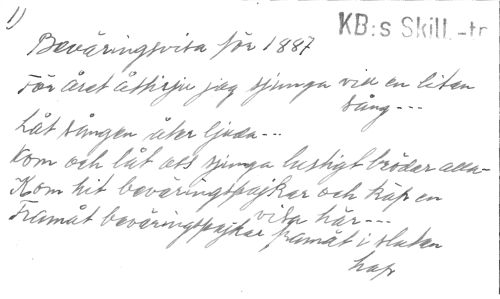 1)
KB:s Skill.-tr
Beväringsvisa för 1887
För året åttisju jag sjunga vill en liten
sång---
Låt sången åter ljuda---
Kom och låt oss sjunga lustigt bröder alla-
Kom hit beväringspojkar och köp en
visa här---
Framåt beväringspojkar framåt i sluten